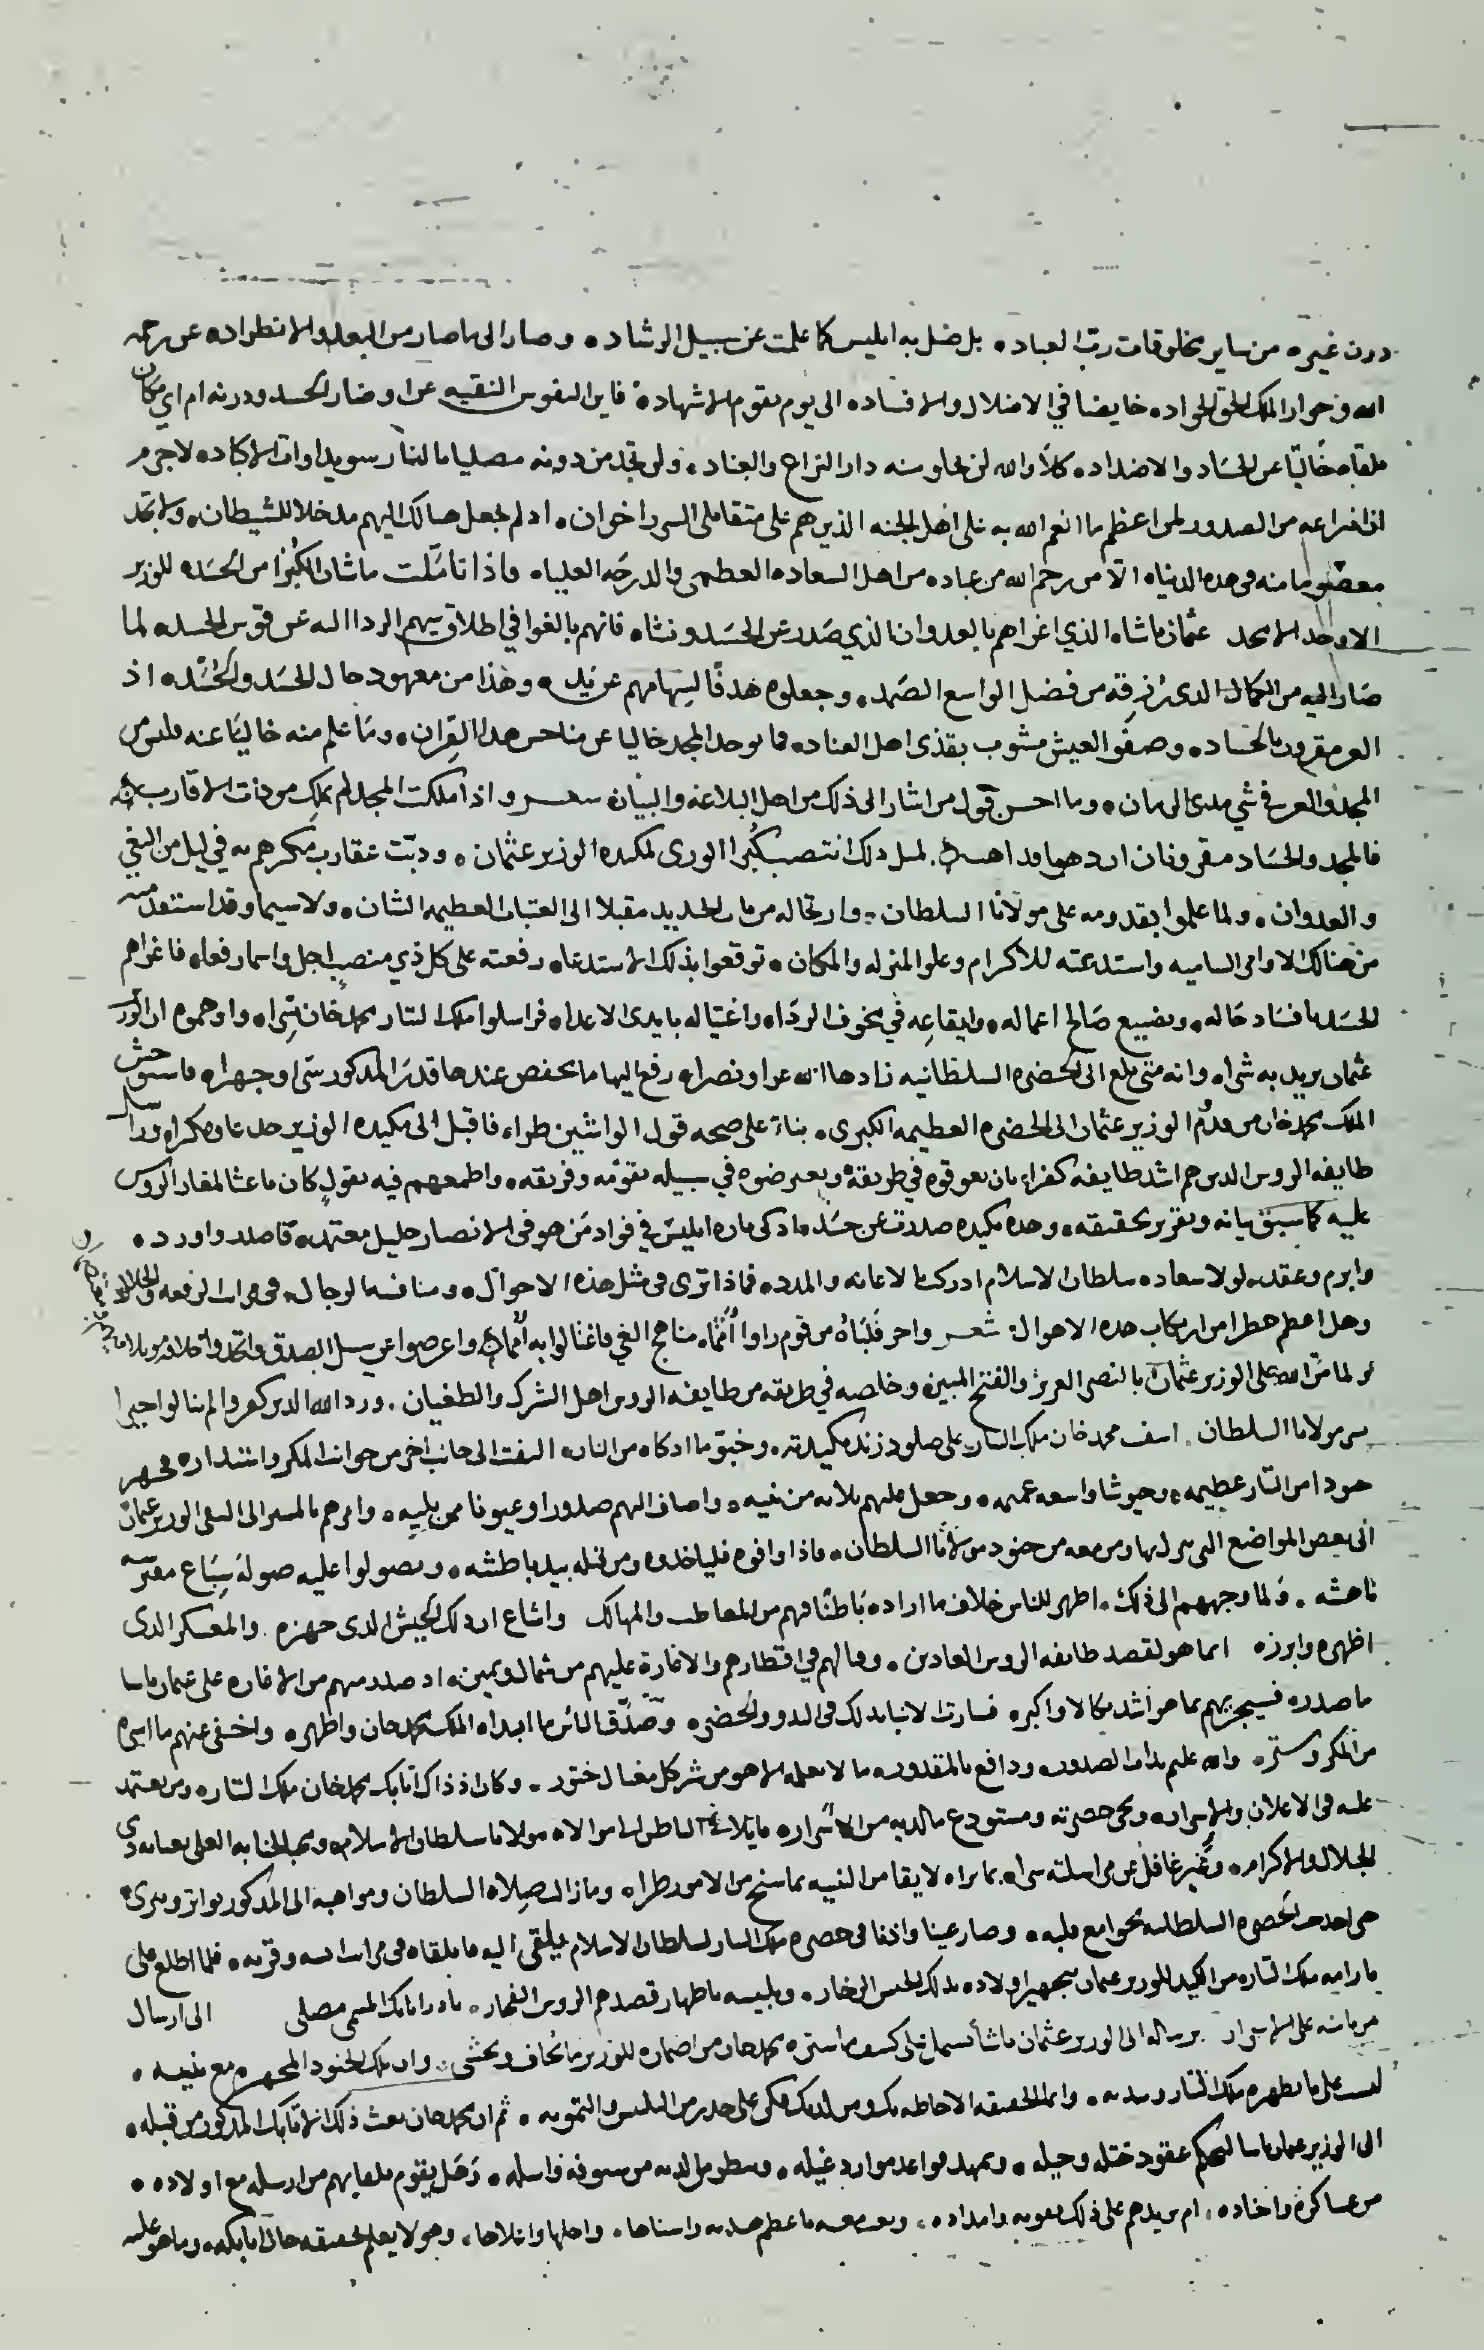 دون غيره من ساير مخلوقات رب العباد بل ضل به ابليس كما علمت عن سبيل الرشاد وصار الى ما صار من البعد والانطراد عن رحمه
الله وجوار الملك الحق الجواد خايضا في الاضلال والافساد الى يوم يقوم الاشهاد فاين النفوس النقيه عن اوضار الحسد ودرنه ام اي مكان
تلقاه خاليا عن الحساد والاضداد كلا والله لن يخلو منه دار النزاع والعناد ولن تجد من دونه مصليا بالنار سويداوات الاكباد لا جرم
ان انتزاعه من الصدور لمن اعظم ما انعم الله به على اهل الجنه الذين هم على متقابلي السرر اخوان اذ لم يجعل هنالك اليهم مدخلا للشيطان ولا تجد
معصوما منه في هذه الدنيا الا من رحم الله من عباده من اهل السعاده العظمى والدرجه العليا واذا تاملت ما شان الكبرا من الحسده للوزير
الاوحد الامجد عثمان باشا الذي اغراهم بالعدوان الذي صدر عن الحسد ونشا فانهم بالغوا في اطلاق سهم الردا اليه عن قوس الحسد لما
صار اليه من الكمال الذي رزقه من فضل الواسع الصمد وجعلوه هدفا لسهامهم عن يد وهذا من معهود حال الحسد والحسده اذ
العز مقرون بالحساد وصفو العيش مشوب بقذى اهل العناد فما يوجد المجد خاليا عن مناحس هذا القران وما علم منه خاليا عنه فليس من
المجد والعز في شي مدى الزمان وما احسن قول من اشار الى ذلك من اهل البلاغه والبيان شعر واذا ملكت المجد لم تملك مودات الاقارب
فالمجد والحساد مقرونان ان ذهبوا فذاهب لمثل ذلك انتصب كبرا الورى لمكيدة الوزير عثمان ودبت عقارب مكرهم به في ليل من البغي
والعدوان ولما علموا بقدومه على مولانا السلطان وارتحاله من باب الحديد مقبلا الى العتبات العظيمه الشان ولا سيما وقد استقدمته
من هنالك الاوامر الساميه واستدعته للاكرام وعلو المنزله والمكان توقعوا بذلك الاستدعاء رفعته على كل ذي منصب اجل واسما رفعا فاغراهم
الحسد بافساد حاله وتضييع صالح اعماله وايقاعه في مخوف الردا واغتياله بايدي الاعداء فراسلوا ملك التتار محمد خان سرا واوهموه ان الوزير
عثمان يريد به شرا وانه متى بلغ الى الحضره السلطانيه زادها الله عزا ونصرا رفع اليها ما يخفض عندها قدر المذكور سرا وجهرا فاستوحش
الملك محمد خان من قدوم الوزير عثمان الى الحضره العظيمه الكبرى بناء على صحه قول الواشين طرا فاقبل الى مكيدة الوزير خداعا ومكرا وراسل
طايفه الروس الذين هم اشد طايفه كفرا بان يعوقوه في طريقه ويعترضوه في سبيله بقومه وفريقه واطمعهم فيه بقول كان باعثا لمغار الروس
عليه كما سبق بيانه وتقرير تحقيقه وهذه مكيده صدرت عن حسد ما ذكى ناره ابليس في فواد من هو في الانصار خليل معتمد قاصد واورده
وابرم وعقد لولا سعاده سلطان الاسلام ادركت بالاعانه والمدد فماذا ترى في مثل هذه الاحوال ومنافسه الرجال في مراتب الرفعه والجلال
وهل اعظم خطرا من ارتكاب هذه الاهوال شعر
ولما من الله على الوزير عثمان بالنصر العزيز والفتح المبين وخلصه في طريقه من طايفه الروس اهل الشرك والطغيان ورد الله الذين كفروا لم ينالوا خيرا
بسر مولانا السلطان اسف محمد خان ملك التتار على صلود زند مكيدته وخبو ما اذكاه من النار التفت الى جانب اخر من جوانب المكر واستداره فجهز
جنودا من التتار عظيمه وجيوشا واسعه عميمه وجعل عليهم ثلاثه من بنيه واضاف اليهم صدورا وعيونا ممن يليه وامرهم بالمسير الى لقى الوزير عثمان
الى بعض المواضع التي نزل بها ومن معه من جنود مولانا السلطان فاذا وافوه فلياخذوه ومن قبله بيد باطشه ويصولوا عليه صوله سباع مفترسه
ناهشه ولما وجههم الى ذلك اظهر للناس خلاف ما اراده باطنا فيهم من المعاطب والمهالك واشاع ان ذلك الجيش الذي جهزه والمعسكر الذي
اظهره وابرزه انما هو لقصد طايفه الروس العادين وقتالهم في اقطارهم والاغارة عليهم من شمال ويمين اذ صدر منهم من الاغاره على عثمان باشا
ما صدر فسيجزيهم بما هو اشد نكالا واكبر فسارت الانباء بذلك في البدو والحضر وصدق الناس ما ابداه الملك محمد خان واظهره واخفى عنهم ما اسره
من المكر وستره والله عليم بذات الصدور ودافع بالمقدور ما لا يعلمه الا هو من شر كل مغتال ختور وكان اذ ذاك اتابك محمد خان ملك التتار ومن يعتمد
عليه في الاعلان والاسرار ونجي حضرته ومستودع ما لديه من الاسرار مولانا سلطان الاسلام
الجلال والاكرام وغير غافل عن مراسلته سرا بما يراه لايقا من التنبيه بما سنح من الامور طرا وما زالت صلاة السلطان ومواهبه الى المذكور تواتر وتترى
حتى اخذت الحضره السلطانيه بجوامع قلبه وصار عينا واذنا في حضرة ملك التتار لسلطان الاسلام يلقى اليه ما يلقاه فلما اطلع على
ما رامه ملك التتار من الكيد للوزير عثمان بتجهيز اولاده بذلك الجيش الزخار وتلبيسه باظهار قصدهم الروس الفجار بادر اتابك المسمى مصلى الى ارسال
من يامنه على الاسرار برساله الى الوزير عثمان باشا تشتمل على كشف ما ستره محمد خان من اضماره للوزير ما يخاف ويخشى وان تلك الجنود المجهزه مع بنيه
ليست على ما يظهره ملك التتار ويبديه وانما الحقيقه الاحاطه بك وبمن لديك فكن على حذر من التلبيس والتمويه ثم ان محمد خان بعث ذلك الاتابك المذكور من قبله
الى الوزير عثمان باشا ليحكم عقود ختله وحيله ويمهد قواعد موارد غيله وينظر ما لديه من سيوفه واسله وهل يقوم بلقايهم من ارسله مع اولاده
من عساكره واجناده ام يريدهم على ذلك بمعونه وامداده وبعث معه ما عظم هديه واسناها واجلها واغلاها وهو لا يعلم حقيقه حال اتابكه وما هو عليه